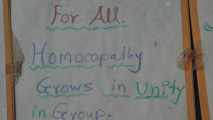 For All.
Homoeopathy
Grows in Unity
in Group.